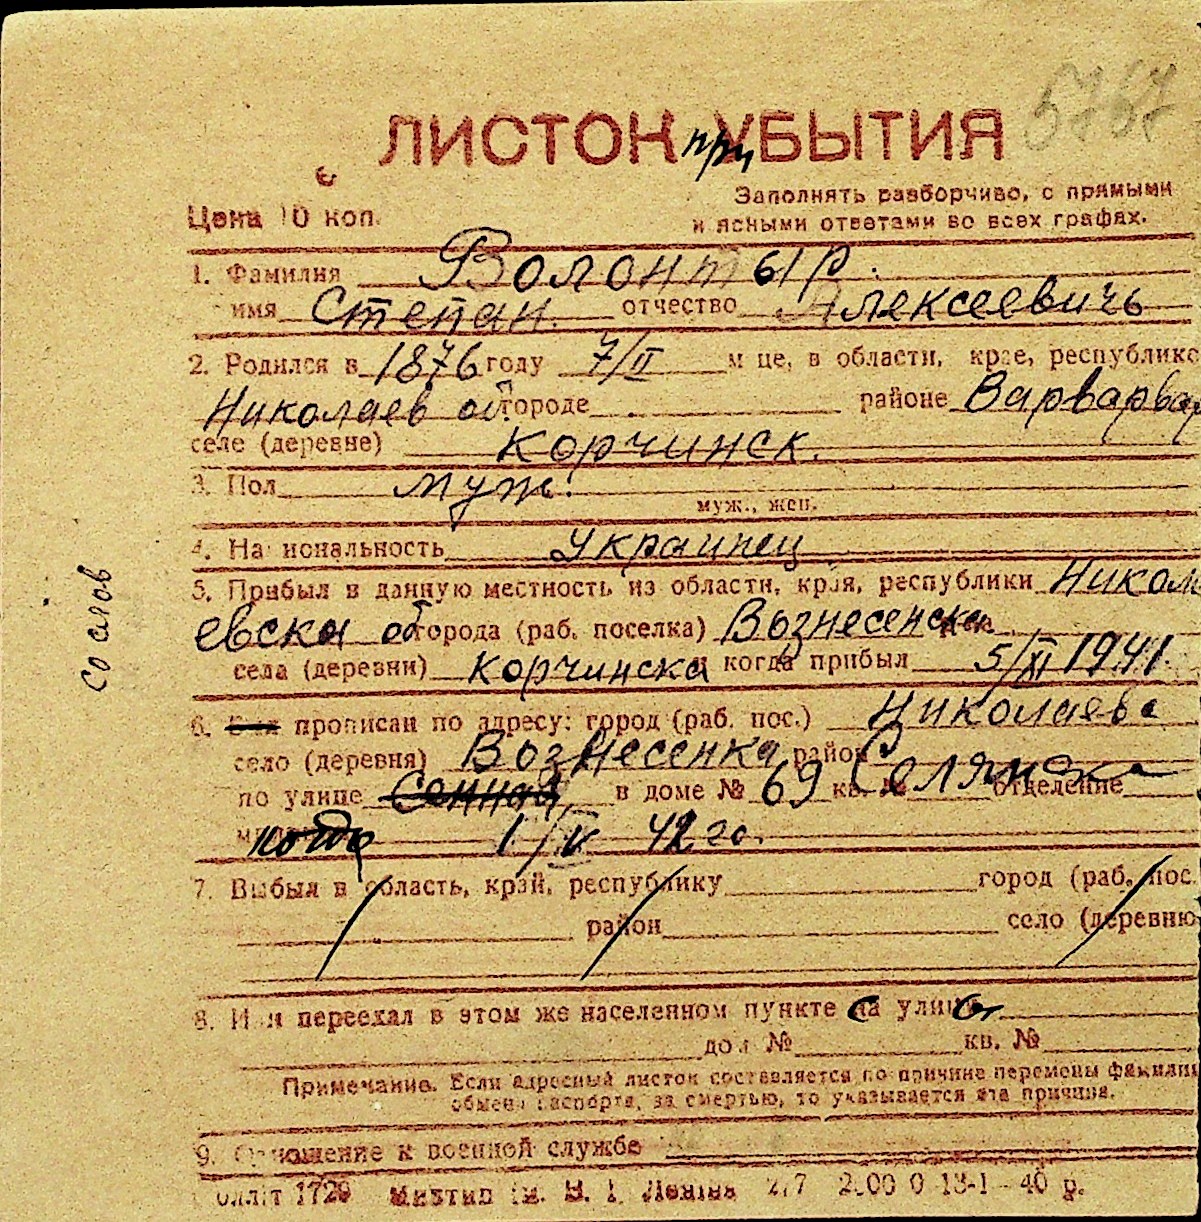 5767
ЛИСТОК при УБЫТИЯ
Цена 10 коп.
Заполнять разборчиво, с прямыми
и ясными ответами во всех графах.
1. Фамилия Волонтыр.
имя Степан. отчество Алексеевичь
2. Родился в 1876 году 7/II м це, в области, крае, республике
Николаев об. городе районе Варварвар
селе (деревне) Корчинск.
3. Пол муж.
муж., жен.
4. На иональность Украинец
5. Прибыл в данную местность из области, края, республики Никол
евска об города (раб. поселка) Вознесенска
села (деревни) Корчинска и когда прибыл 5/XI 1941.
со слов
6. прописан по адресу: город (раб. пос.) Николаева
село (деревня) Вознесенка район
по улице Сенная в доме № 69 кв. № Селянска отделение
когда 1/V 42 го.
7. Выбыл в область, край, республику город (раб. пос.
район село (деревню
8. И и переехал в этом же населенном пункте с улицы
дом № кв. №
Примечание. Если адресный листок составляется по причине перемены фамилии
обмена паспорта, за смертью, то указывается эта причина.
9. Отношение к военной службе
1729 Ленина 2.00 0 13-1 - 40 р.